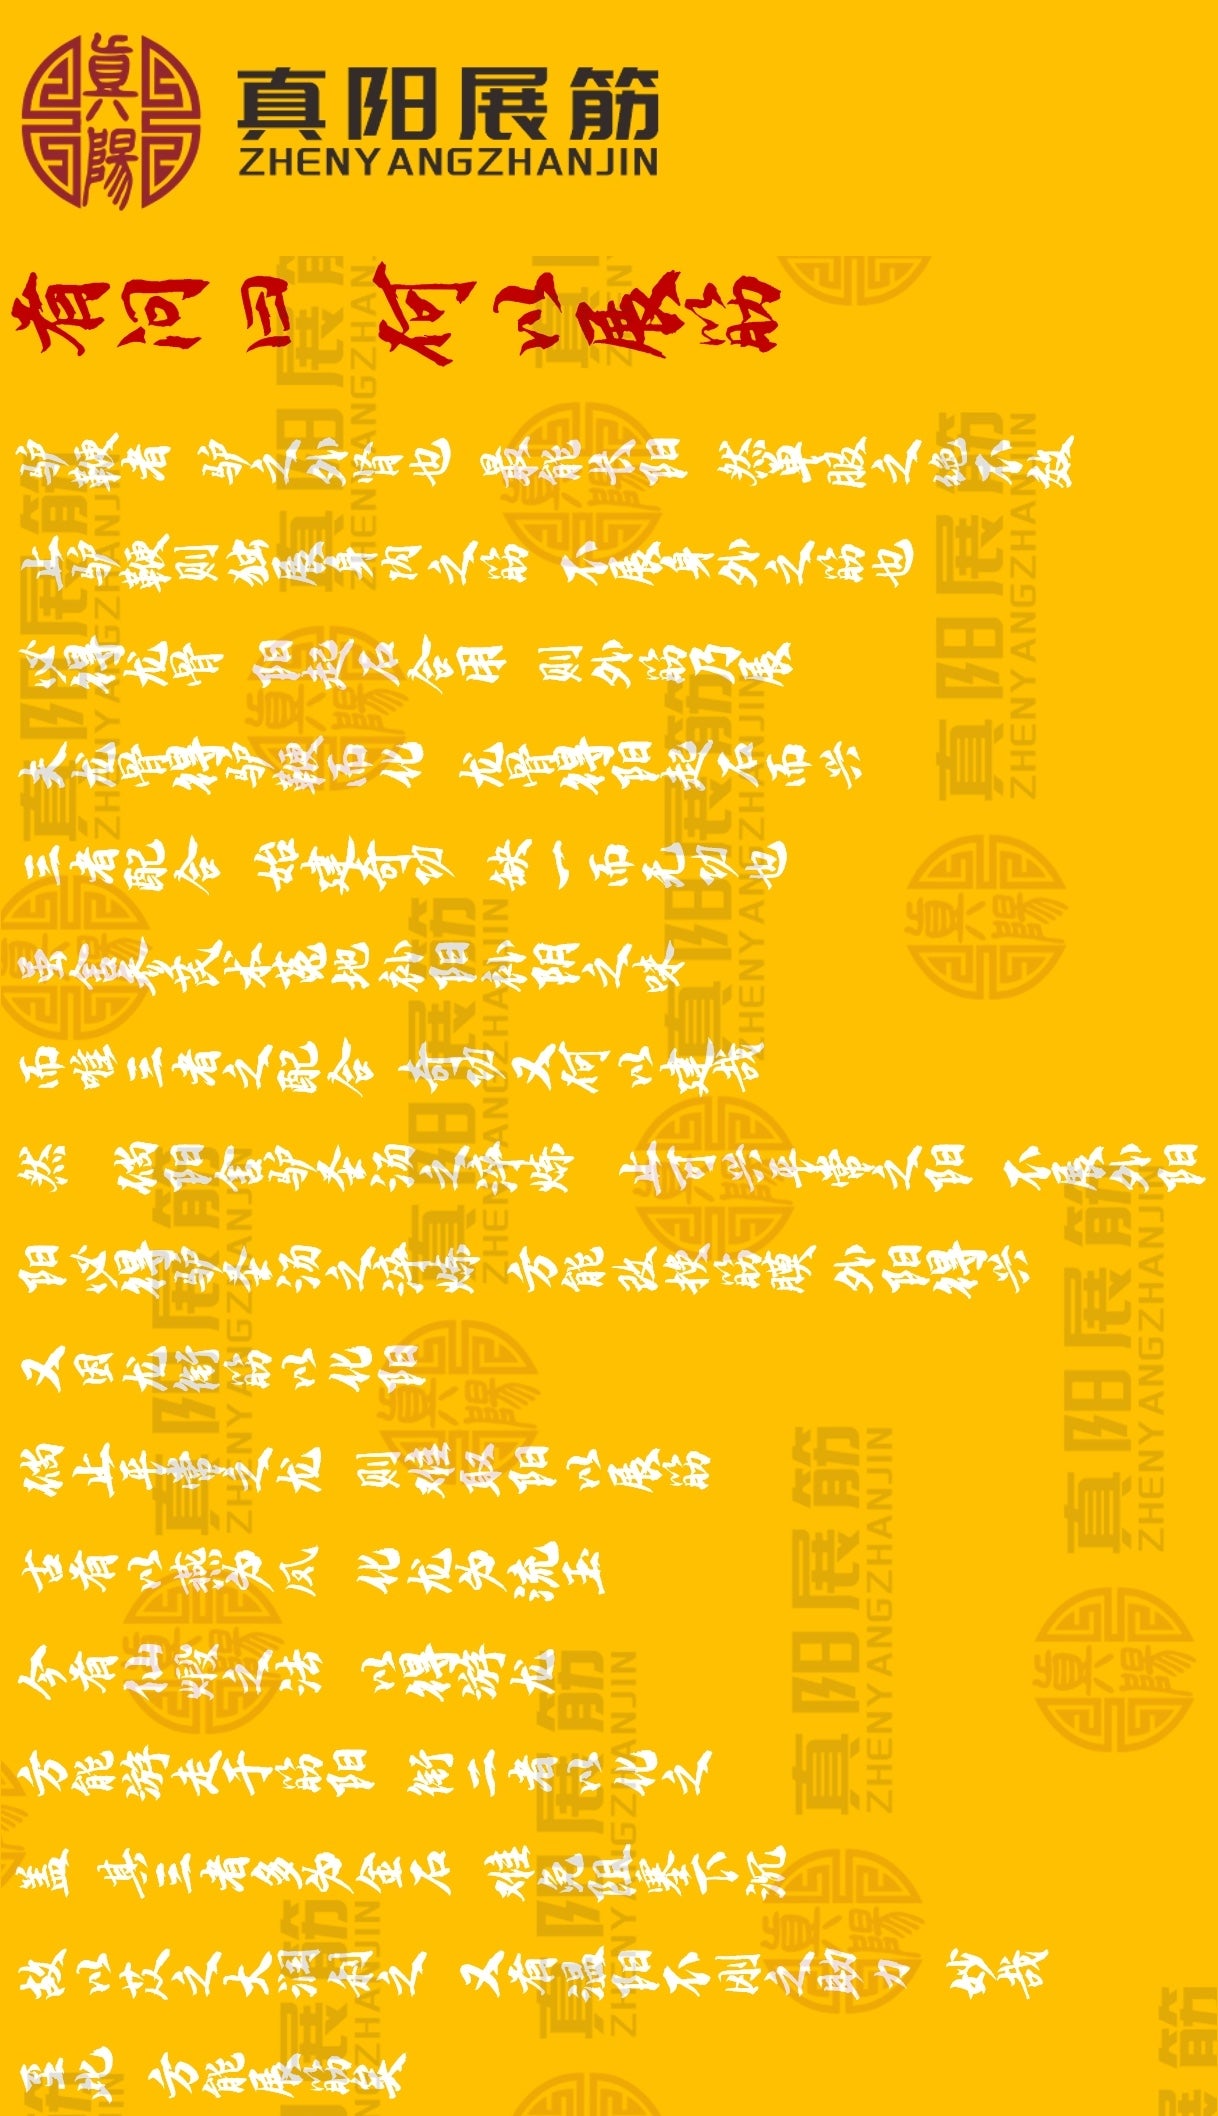 真阳展筋
ZHENYANGZHANJIN
有问曰 何以展筋
驴鞭者 驴之外肾也 最能长阳 然单服之绝不效
止驴鞭则犹展身内之筋 不展身外之筋也
必得龙骨 阳起石合用 则外筋乃展
夫龙骨得驴鞭而化 龙骨得阳起石而兴
三者配合 始建奇功 缺一而无功也
尝食炙芪术菟地补阳补阴之味
而唯三者之配合 奇功又何以建哉
然 倘阳舍驴本汤之淬炼 止可兴平常之阳 不展外阳
阳必得驴本汤之淬炼 方能改换筋膜 外阳得兴
又因龙衔筋以化阳
倘止平常之龙 则难取阳以展筋
古有以燕为凤 化龙为流玉
今有仙煅之法 以得游龙
方能游走于筋阳 衔二者以化之
盖 其三者多为金石 难免阻塞下沉
故以苁之大润利之 又有温阳不刚之助力 妙哉
至此 方能展筋矣